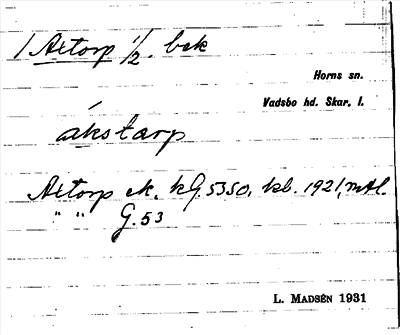 / Axtorp 1/2. bck
Horns sn.
Vadsbo hd. Skar. l.
ákstærp
Axtorp ek. kG. 5350, kb. 1921, mtl.
" " G. 53
L. MADSÉN 1931